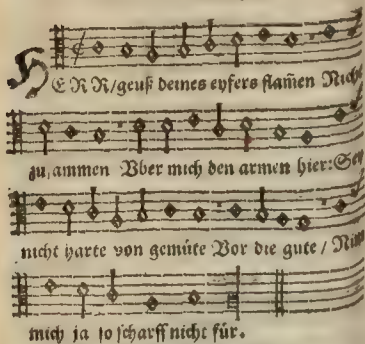 HERR/geuß deines eyfers flam̃en Nicht
zuſammen Vber mich den armen hier: Sey
nicht harte von gemüte Vor die gute / Nim
mich ja ſo ſcharff nicht für.